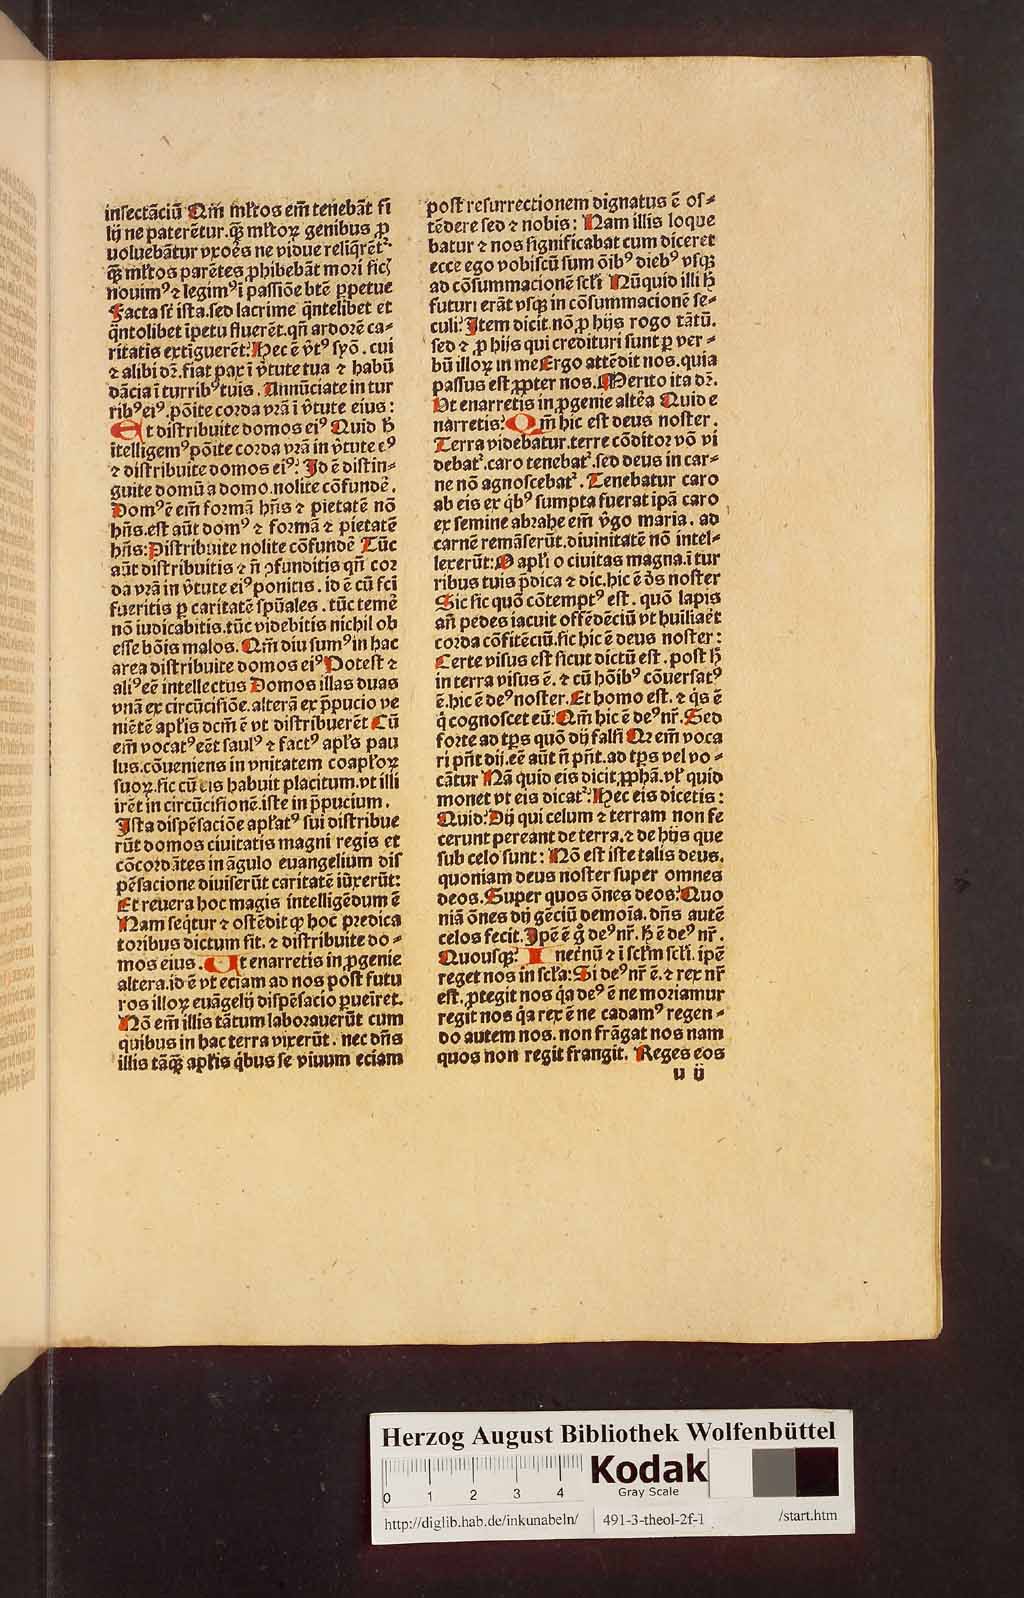 insectāciū Qm̄ ml̄tos em̄ tenebāt fi
lij ne paterētur. qꝫ ml̄toꝝ genibus ꝓ
uoluebātur vxoēs ne vidue reliq̄rētᷣ
qꝫ ml̄tos parētes ꝓhibebāt mori sicꝫ
nouimꝰ ⁊ legimꝰ ī passiōe btē ꝑpetue
Facta sr̄ ista. sed lacrime q̄ntelibet et
q̄ntolibet īpetu fluerēt. qn̄ ardorē ca⸗
ritatis extīguerēt? Hec ē v̄tꝰ sp̄ō. cui
⁊ alibi dr̄. fiat pax ī v̄tute tua ⁊ habū
dācia ī turribꝰ tuis. Annūciate in tur
ribꝰ eiꝰ. pōite corda vr̄a ī v̄tute eius:
Et distribuite domos eiꝰ Quid h̄
ītelligemꝰ pōite corda vr̄a in v̄tute eꝰ
⁊ distribuite domos eiꝰ? Id ē distin⸗
guite domū a domo. nolite cōfundē.
Domꝰ ē em̄ formā hn̄s ⁊ pietatē nō
hn̄s. est aūt domꝰ ⁊ formā ⁊ pietatē
hn̄s: Distribuite nolite cōfundē Tūc
aūt distribuitis ⁊ n̄ ꝯfunditis qn̄ cor
da vr̄a in v̄tute eiꝰ ponitis. id ē cū fc̄i
fueritis ꝑ caritatē sp̄uales. tūc temē
nō iudicabitis. tūc videbitis nichil ob
esse bōis malos. Qm̄ diu sumꝰ in hac
area distribuite domos eiꝰ Potest ⁊
aliꝰ eē intellectus Domos illas duas
vnā ex circūcisiōe. alterā ex p̄pucio ve
niētē apl̄is dcm̄ ē vt distribuerēt Cū
em̄ vocatꝰ eēt saulꝰ ⁊ factꝰ apl̄s pau
lus. cōueniens in vnitatem coapl̄oꝝ
suoꝝ. sic cū eis habuit placitum. vt illi
irēt in circūcisionē. iste in p̄pucium.
Ista dispēsaciōe apl̄atꝰ sui distribue
rūt domos ciuitatis magni regis et
cōcordātes in āgulo euangelium dis
pēsacione diuiserūt caritatē iūxerūt:
Et reuera hoc magis intelligēdum ē
Nam seq̄tur ⁊ ostēdit qꝫ hoc predica
toribus dictum sit. ⁊ distribuite do⸗
mos eius. Ut enarretis in ꝓgenie
altera. id ē vt eciam ad nos post futu
ros illoꝝ euāgelij dispēsacio ꝑueīret.
Nō em̄ illis tātum laborauerūt cum
quibus in hac terra vixerūt. nec dn̄s
illis tāqꝫ apl̄is q̄bus se viuum eciam
post resurrectionem dignatus ē os⸗
tēdere sed ⁊ nobis: Nam illis loque
batur ⁊ nos significabat cum diceret
ecce ego vobiscū sum ōibꝰ diebꝰ vsqꝫ
ad cōsummacionē scl̄i Nūquid illi h̄
futuri erāt vsqꝫ in cōsummacionē se⸗
culi? Item dicit. nō ꝓ hijs rogo tātū.
sed ⁊ ꝓ hijs qui credituri sunt ꝑ ver⸗
bū illoꝝ in me Ergo attēdit nos. quia
passus est ꝓpter nos. Merito ita dr̄.
Ut enarretis in ꝓgenie altēa Quid e
narretis? Qm̄ hic est deus noster.
Terra videbatur. terre cōditor vō vi
debatᷣ. caro tenebatᷣ. sed deus in car⸗
ne nō agnoscebatᷣ. Tenebatur caro
ab eis ex q̄bꝰ sumpta fuerat ipā caro
ex semine abrahe em̄ v̄go maria. ad
carnē remāserūt. diuinitatē nō intel⸗
lexerūt: O apl̄i o ciuitas magna. ī tur
ribus tuis p̄dica ⁊ dic. hic ē ds̄ noster
Sic sic quō cōtemptꝰ est. quō lapis
an̄ pedes iacuit offēdēciū vt huiliaēt
corda cōfitēciū. sic hic ē deus noster:
Certe visus est sicut dictū est. post h̄
in terra visus ē. ⁊ cū hōibꝰ cōuersatꝰ
ē. hic ē deꝰ noster. Et homo est. ⁊ q̄s ē
q̄ cognoscet eū? Qm̄ hic ē deꝰ nr̄. Sed
forte ad tp̄s quō dij falsi Qr em̄ voca
ri pn̄t dij. eē aūt n̄ pn̄t. ad tp̄s vel vo⸗
cātur Nā quid eis dicit ꝓphā. vl̄ quid
monet vt eis dicatᷣ? Hec eis dicetis:
Quid? Dij qui celum ⁊ terram non fe
cerunt pereant de terra. ⁊ de hijs que
sub celo sunt: Nō est iste talis deus.
quoniam deus noster super omnes
deos. Super quos ōnes deos? Quo
niā ōnes dij gēciū demoīa. dn̄s autē
celos fecit. Ipē ē g̊ deꝰ nr̄. h̄ ē deꝰ nr̄.
Quousqꝫ? In et̄nū ⁊ ī scl̄m scl̄i. ipē
reget nos in scl̄a: Si deꝰ nr̄ ē. ⁊ rex nr̄
est. ꝓtegit nos q̄a deꝰ ē ne moriamur
regit nos q̄a rex ē ne cadamꝰ regen⸗
do autem nos. non frāgat nos nam
quos non regit frangit. Reges eos
u ij
Herzog August Bibliothek Wolfenbüttel
0 1 2 3 4
Kodak
Gray Scale
http://diglib.hab.de/inkunabeln/ 491-3-theol-2f-1 /start.htm